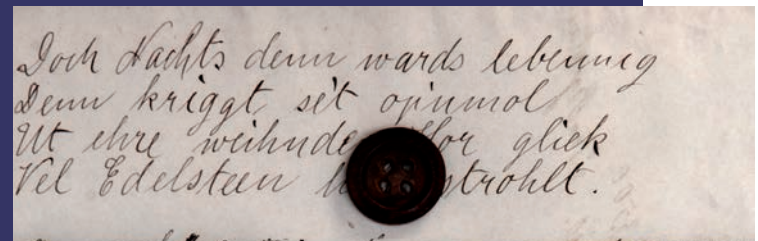 Doch Nachts denn wards lebennig
Denn kriggt
Ut ehre weihnde Hor gliek
Vel Edelsteen strohlt.